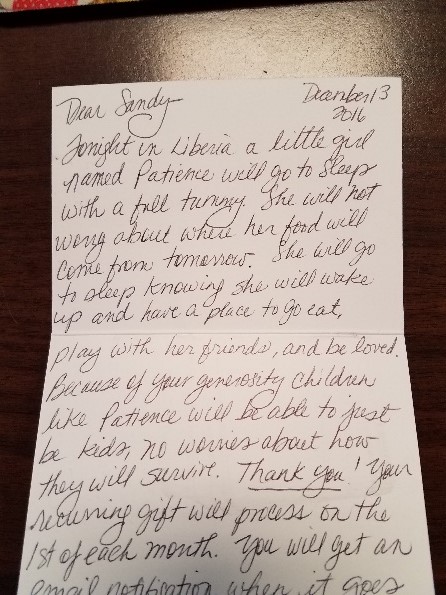 December 13
2016
Dear Sandy
Tonight in Liberia a little girl
named Patience will go to sleep
with a full tummy. She will not
worry about where her food will
come from tomorrow. She will go
to sleep knowing she will wake
up and have a place to go eat,
play with her friends, and be loved.
Because of your generosity children
like Patience will be able to just
be kids, no worries about how
they will survive. Thank you! Your
recurring gift will process on the
1st of each month. You will get an
email notification when it goes